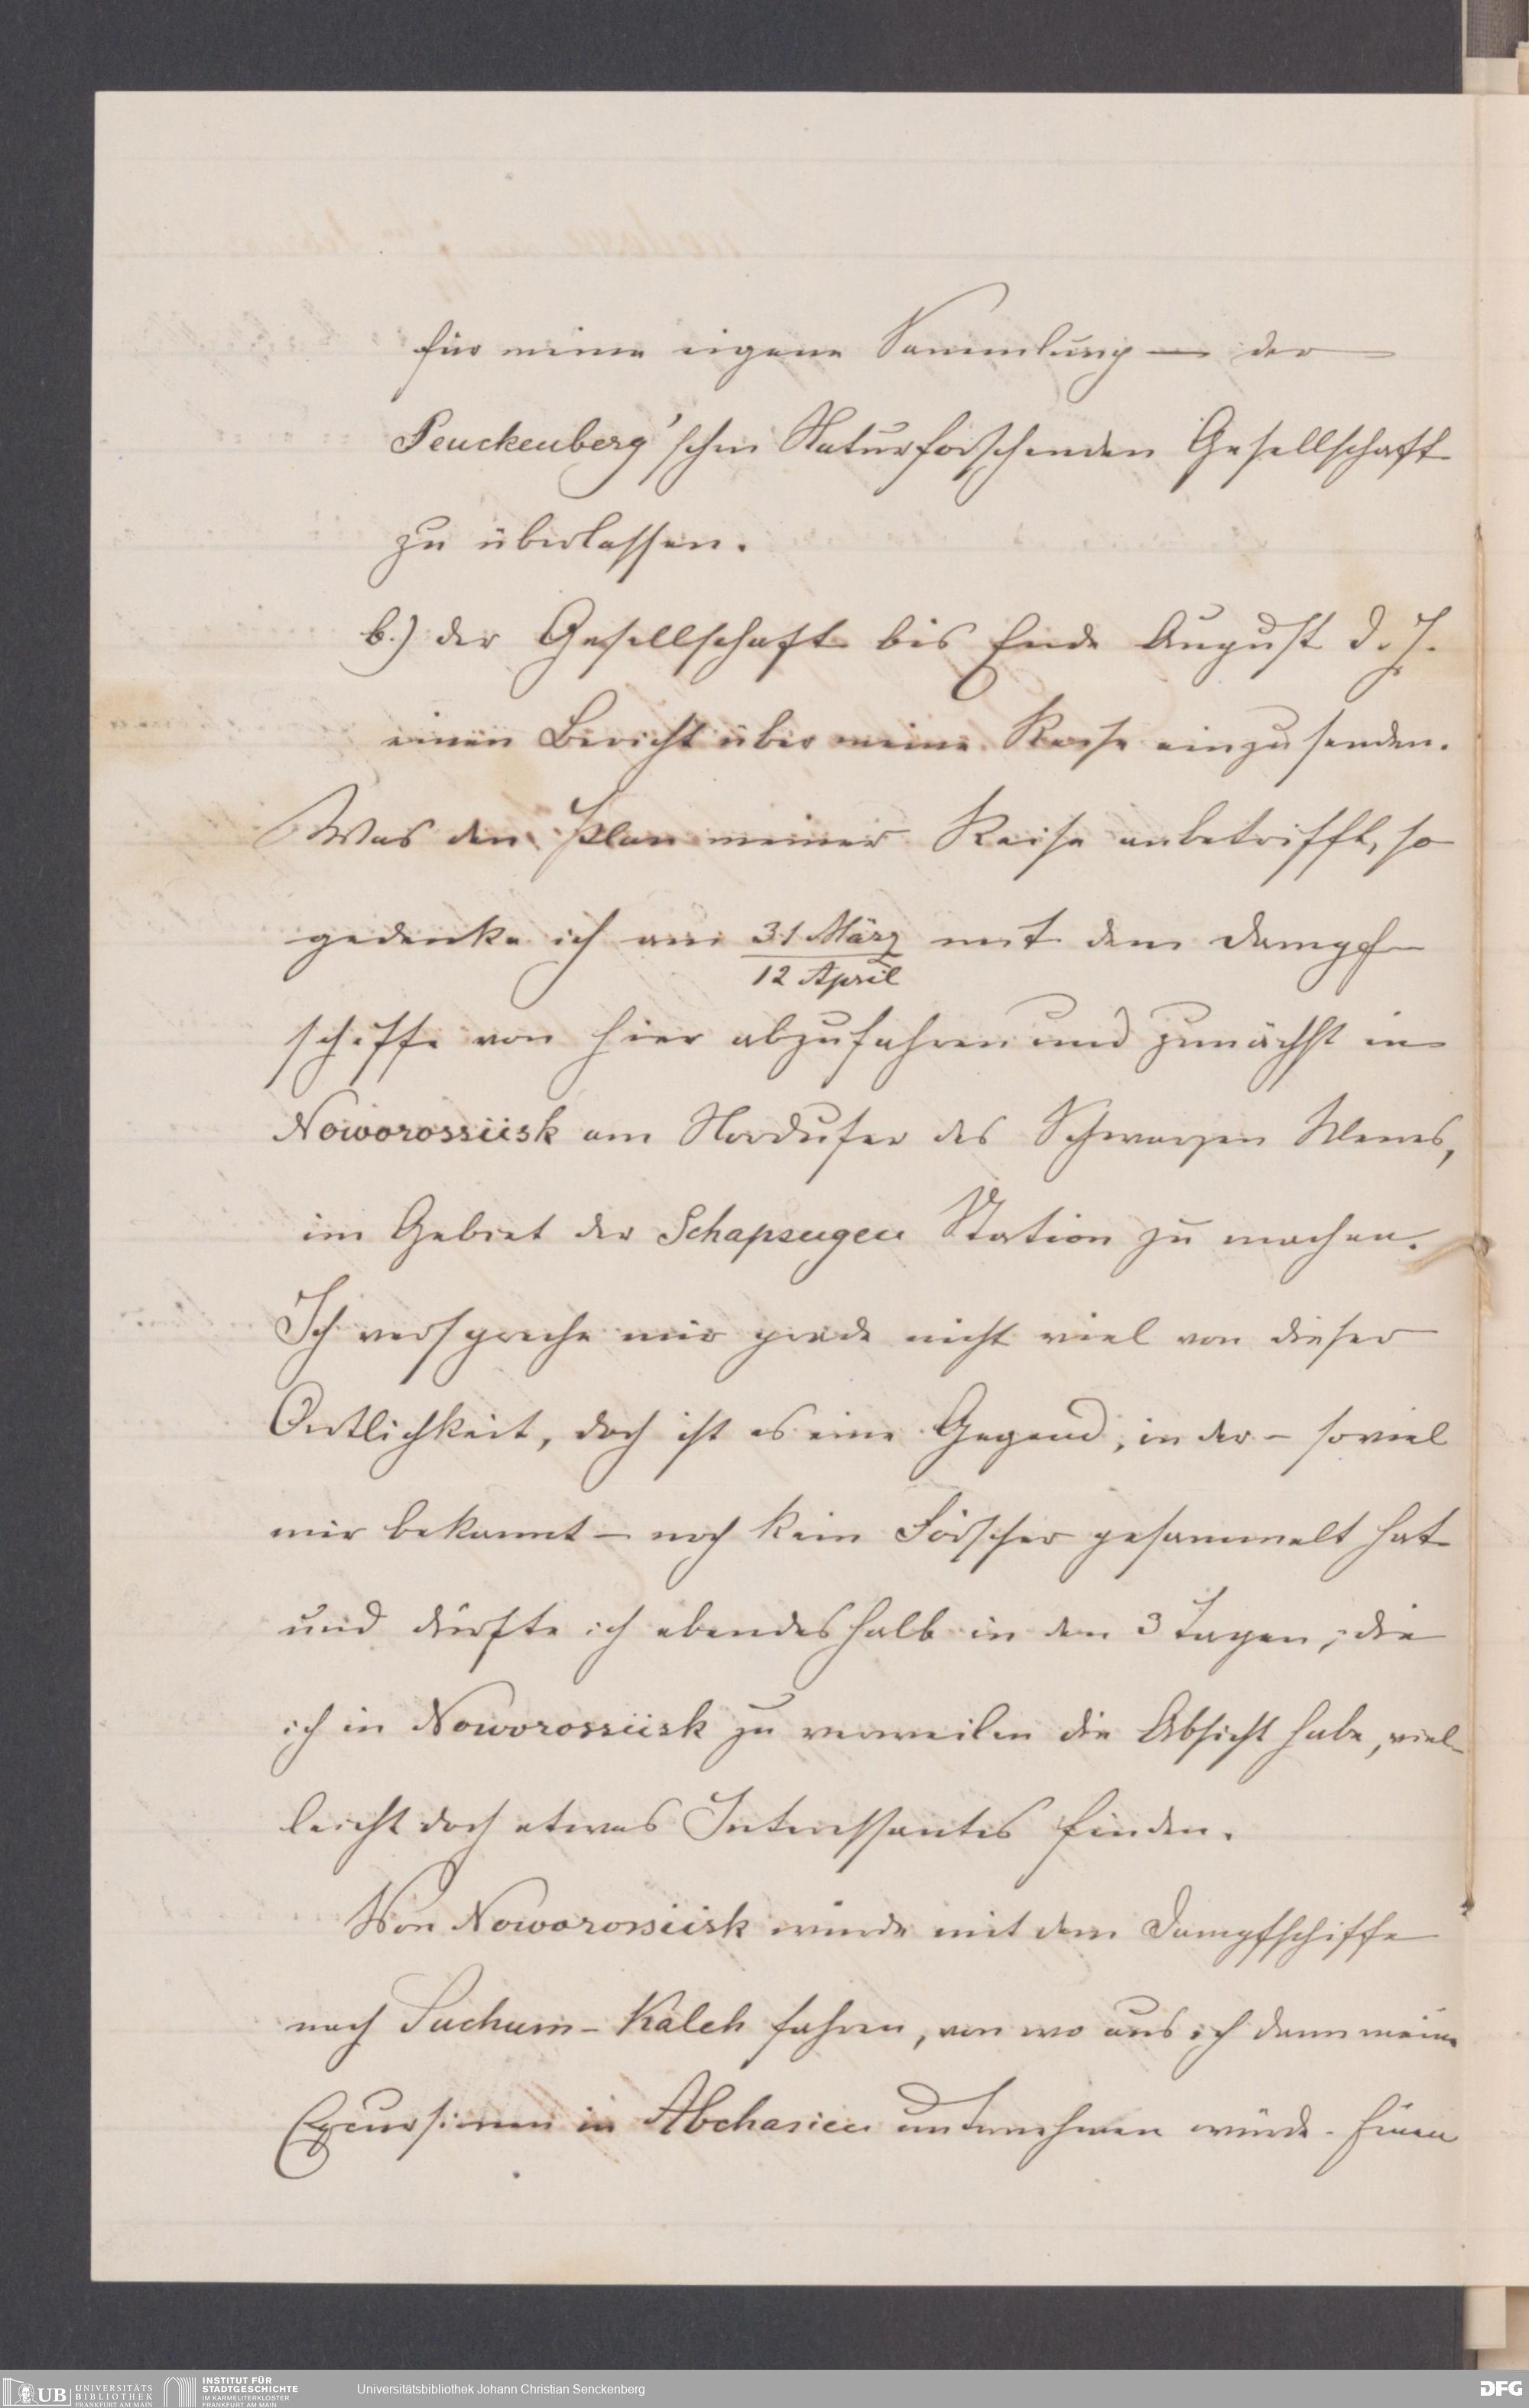 für meine eigene Sammlung — der
Senckenberg'schen Naturforschenden Gesellschaft
zu überlassen.
b.) der Gesellschaft bis Ende August d. J.
einen Bericht über meine Reise einzusenden.
Was den Plan meiner Reise anbetrifft, so
gedenke ich am 31 März / 12 April mit dem Dampf-
schiffe von hier abzufahren und zunächst in
Noworossiisk am Nordufer des Schwarzen Meeres,
im Gebiet der Schapsugen Station zu machen.
Ich verspreche mir grade nicht viel von dieser
Oertlichkeit, doch ist es eine Gegend, in der – soviel
mir bekannt – noch kein Forscher gesammelt hat
und dürfte ich ebendeshalb in den 3 Tagen, die
ich in Noworossiisk zu verweilen die Absicht habe, viel-
leicht doch etwas Interessantes finden.
Von Noworossiisk würde mit dem Dampfschiffe
nach Suchum-Kaleh fahren, von wo aus ich dann meine
Excursionen in Abchasien unternehmen würde. Einen
UB UNIVERSITÄTS
BIBLIOTHEK
FRANKFURT AM MAIN
INSTITUT FÜR
STADTGESCHICHTE
IM KARMELITERKLOSTER
FRANKFURT AM MAIN
Universitätsbibliothek Johann Christian Senckenberg
DFG